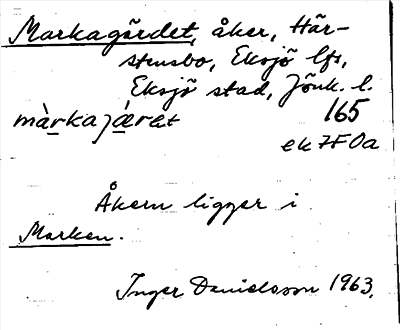 Markagärdet, åker, Här-
stensbo, Eksjö lfs,
Eksjö stad, Jönk. l.
màrkajáret 165
ek 7F 0a
Åkern ligger i
Marken.
Inger Danielsson 1963.